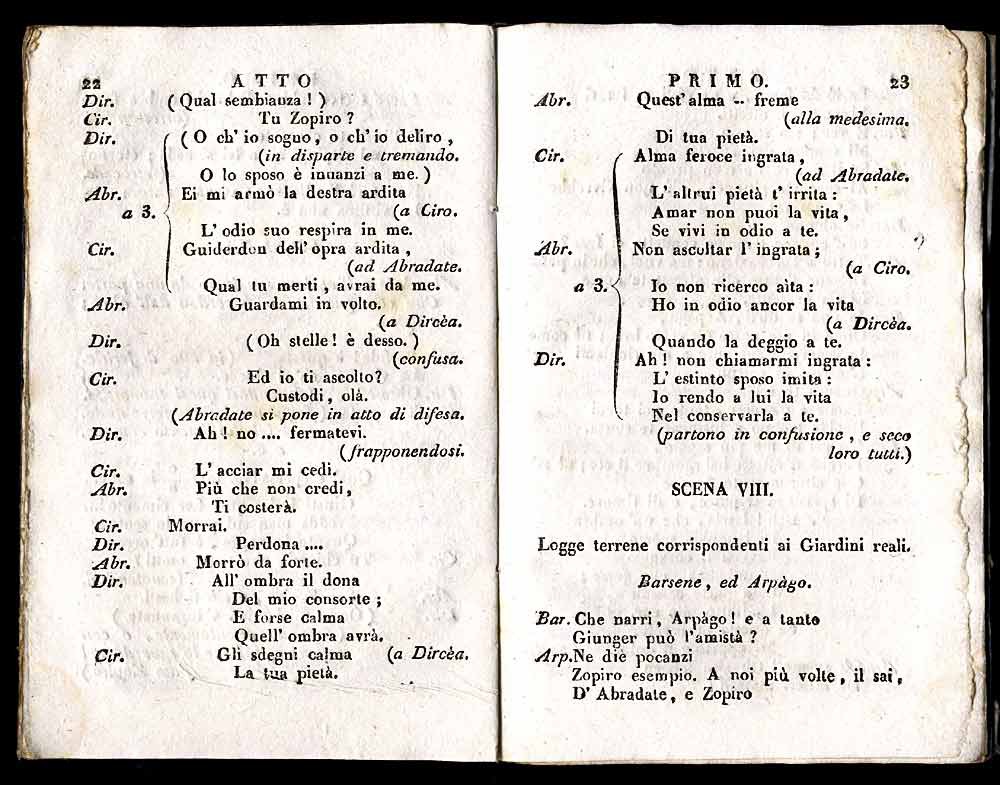 22 ATTO
Dir. (Qual sembianza!)
Cir. Tu Zopiro?
Dir. (O ch' io sogno, o ch' io deliro,
(in disparte e tremando.
O lo sposo è innanzi a me.)
Abr. Ei mi armò la destra ardita
a 3. (a Ciro.
L' odio suo respira in me.
Cir. Guiderdon dell' opra ardita,
(ad Abradate.
Qual tu merti, avrai da me.
Abr. Guardami in volto.
(a Dircèa.
Dir. (Oh stelle! è desso.)
(confusa.
Cir. Ed io ti ascolto?
Custodi, olà.
(Abradate si pone in atto di difesa.
Dir. Ah! no .... fermatevi.
(frapponendosi.
Cir. L' acciar mi cedi.
Abr. Più che non credi,
Ti costerà.
Cir. Morrai.
Dir. Perdona ....
Abr. Morrò da forte.
Dir. All' ombra il dona
Del mio consorte;
E forse calma
Quell' ombra avrà.
Cir. Gli sdegni calma (a Dircèa.
La tua pietà.
PRIMO. 23
Abr. Quest' alma -- freme
(alla medesima.
Di tua pietà.
Cir. Alma feroce ingrata,
(ad Abradate.
L' altrui pietà t' irrita:
Amar non puoi la vita,
Se vivi in odio a te.
Abr. Non ascoltar l' ingrata;
(a Ciro.
a 3. Io non ricerco aita:
Ho in odio ancor la vita
(a Dircèa.
Quando la deggio a te.
Dir. Ah! non chiamarmi ingrata:
L' estinto sposo imita:
Io rendo a lui la vita
Nel conservarla a te.
(partono in confusione, e seco
loro tutti.)
SCENA VIII.
Logge terrene corrispondenti ai Giardini reali.
Barsene, ed Arpàgo.
Bar. Che narri, Arpàgo! e a tanto
Giunger può l'amistà?
Arp. Ne diè pocanzi
Zopiro esempio. A noi più volte, il sai,
D' Abradate, e Zopiro